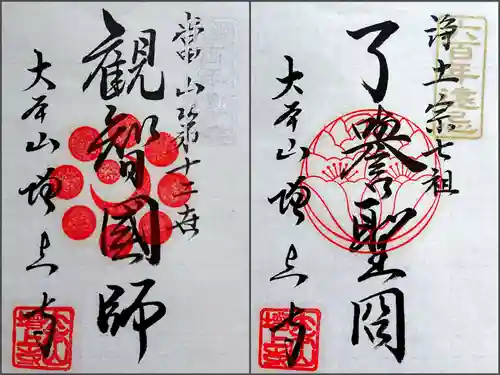 當山第十二世
観智國師
大本山増上寺
六百年遠忌
浄土宗七祖
了譽聖冏
大本山増上寺